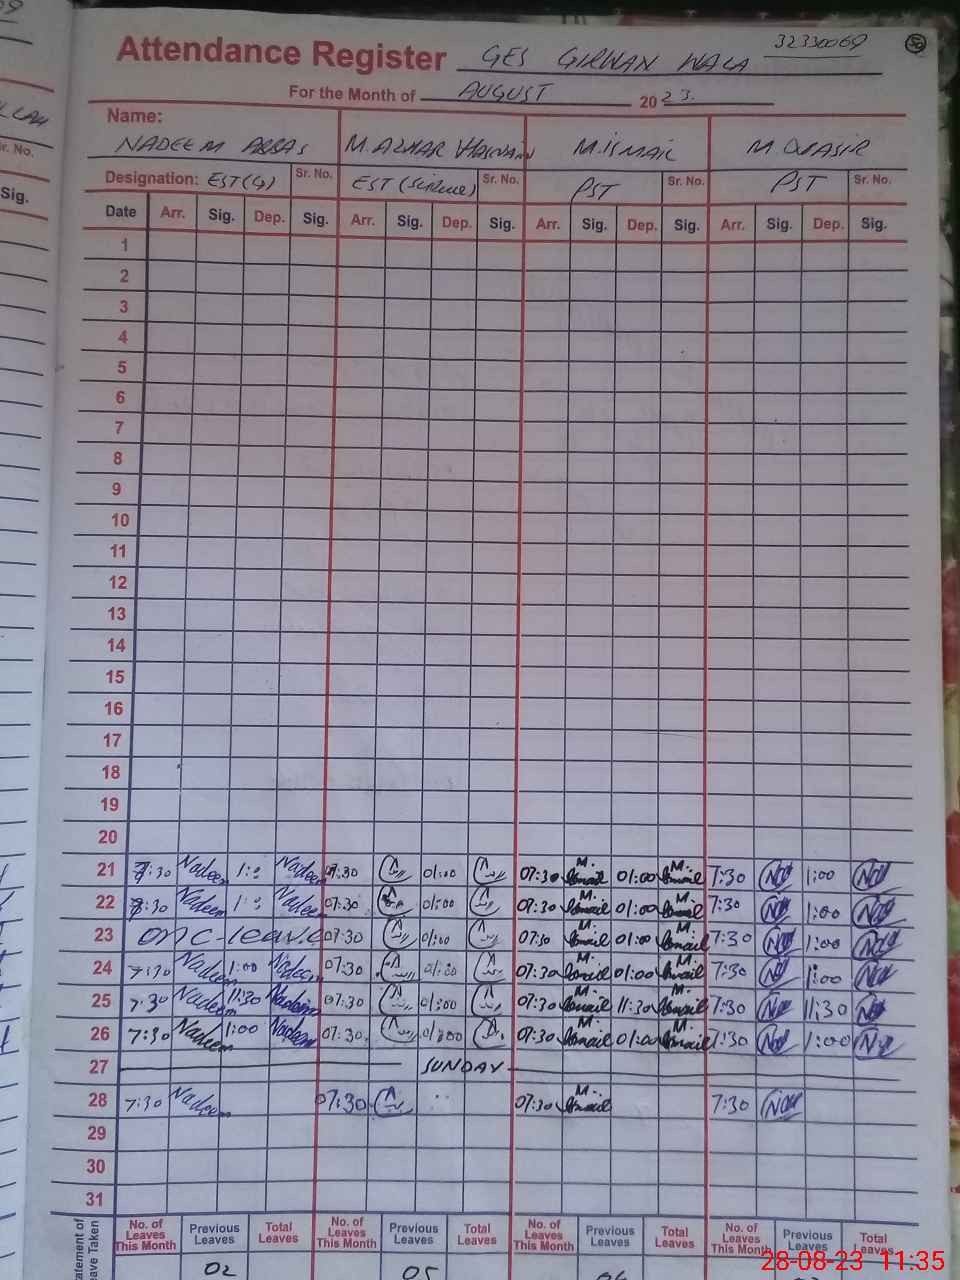 32330069
50
Attendance Register GES GIRWAN WALA
For the Month of AUGUST 2023.
Name:
NADEEM ABBAS M. AZHAR HASNAIN M. ISMAIL M.
Designation: EST(G) Sr. No. EST (Science) Sr. No. PST Sr. No. PST Sr. No.
Date Arr. Sig. Dep. Sig. Arr. Sig. Dep. Sig. Arr. Sig. Dep. Sig. Arr. Sig. Dep. Sig.
1
2
3
4
5
6
7
8
9
10
11
12
13
14
15
16
17
18
19
20
21 7:30 Nadeem 1:0 Nadeem 07:30 01:00 07:30 M. Ismail 01:00 M. Ismail 7:30 1:00
22 7:30 Nadeem 1:0 Nadeem 07:30 01:00 07:30 M. Ismail 01:00 M. Ismail 7:30 1:00
23 on c-leave 07:30 01:00 07:30 M. Ismail 01:00 M. Ismail 7:30 1:00
24 7:30 Nadeem 1:00 Nadeem 07:30 01:00 07:30 M. Ismail 01:00 M. Ismail 7:30 1:00
25 7:30 Nadeem 11:30 Nadeem 07:30 07:30 M. Ismail 11:30 M. Ismail 7:30 11:30
26 7:30 Nadeem 1:00 Nadeem 07:30 01:00 07:30 M. Ismail 01:00 M. Ismail 7:30 1:00
27 SUNDAY
28 7:30 Nadeem 07:30 07:30 M. Ismail 7:30
29
30
31
No. of Leaves This Month Previous Leaves Total Leaves No. of Leaves This Month Previous Leaves Total Leaves No. of Leaves This Month Previous Leaves Total Leaves No. of Leaves This Month Previous Leaves Total Leaves
02 05
28-08-23 11:35